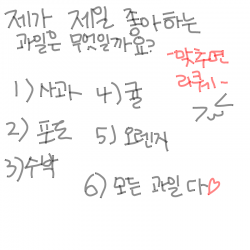 제가 제일 좋아하는
과일은 무엇일까요?
-맞추면
라쿠키-
1) 사과
4) 귤
2) 포도
5) 오렌지
3) 수박
6) 모든 과일 다♡